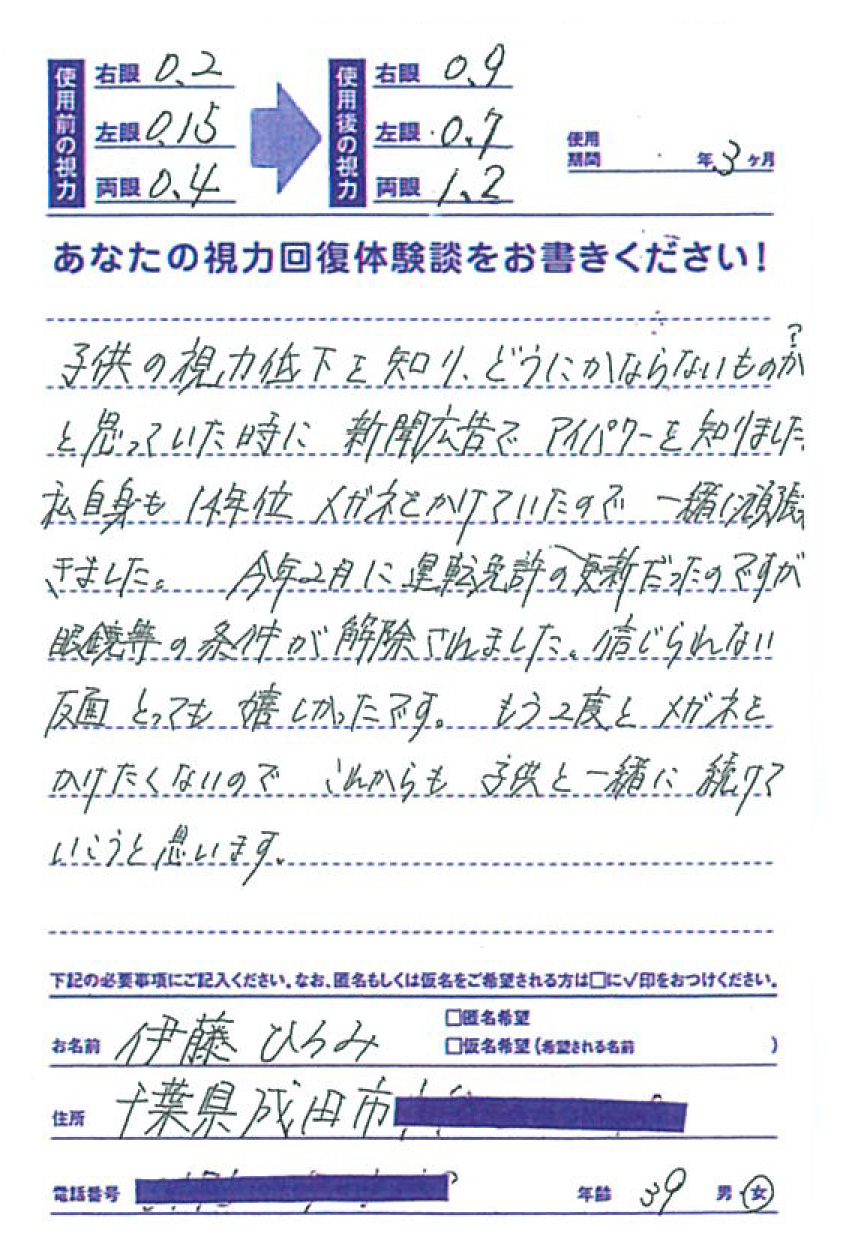 使用前の視力
右眼 0.2
左眼 0.15
両眼 0.4
使用後の視力
右眼 0.9
左眼 0.7
両眼 1.2
使用期間 年 3ヶ月
あなたの視力回復体験談をお書きください!
子供の視力低下を知り、どうにかならないものか?
と思っていた時に 新聞広告で アイパワーを知りました
私自身も 14年位 メガネをかけていたので 一緒に頑張
きました。 今年2月に運転免許の更新だったのですが
眼鏡等の条件が解除されました。信じられない
反面 とっても 嬉しかったです。 もう2度と メガネを
かけたくないので これからも 子供と一緒に 続けて
いこうと思います。
下記の必要事項にご記入ください。なお、匿名もしくは仮名をご希望される方は□に✓印をおつけください。
お名前 伊藤 ひろみ
□匿名希望
□仮名希望(希望される名前 )
住所 千葉県成田市
電話番号
年齢 39 男・女